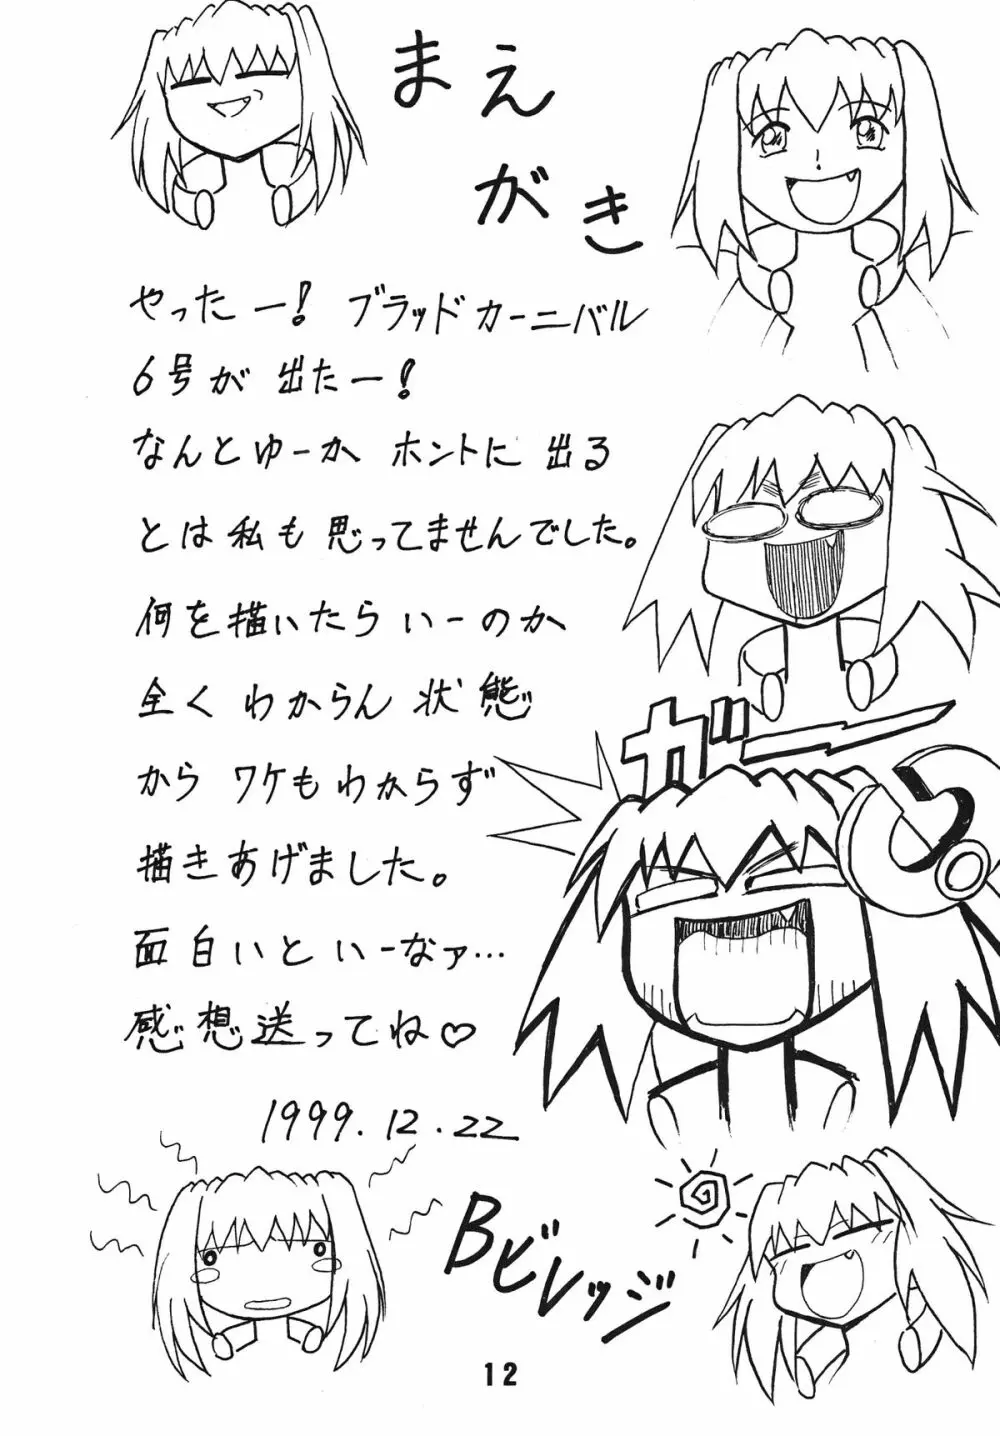 まえ
がき
やったー！ブラッドカーニバル
6号が出たー！
なんとゆーか ホントに出る
とは私も思ってませんでした。
何を描いたらいーのか
全くわからん状態
からワケもわからず
描きあげました。
面白いといーなァ…
感想送ってね♡
1999.12.22
ガー
Bビレッジ
12